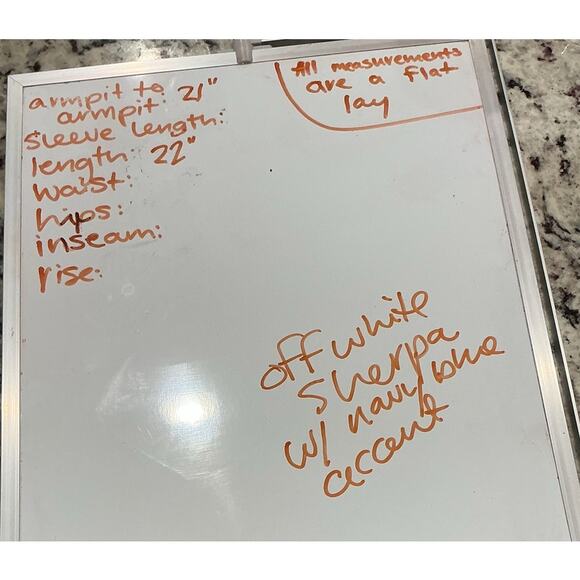 armpit to
armpit: 21"
sleeve length:
length: 22"
waist:
hips:
inseam:
rise:
All measurements
are a flat
lay
off white
sherpa
w/ navy blue
accent